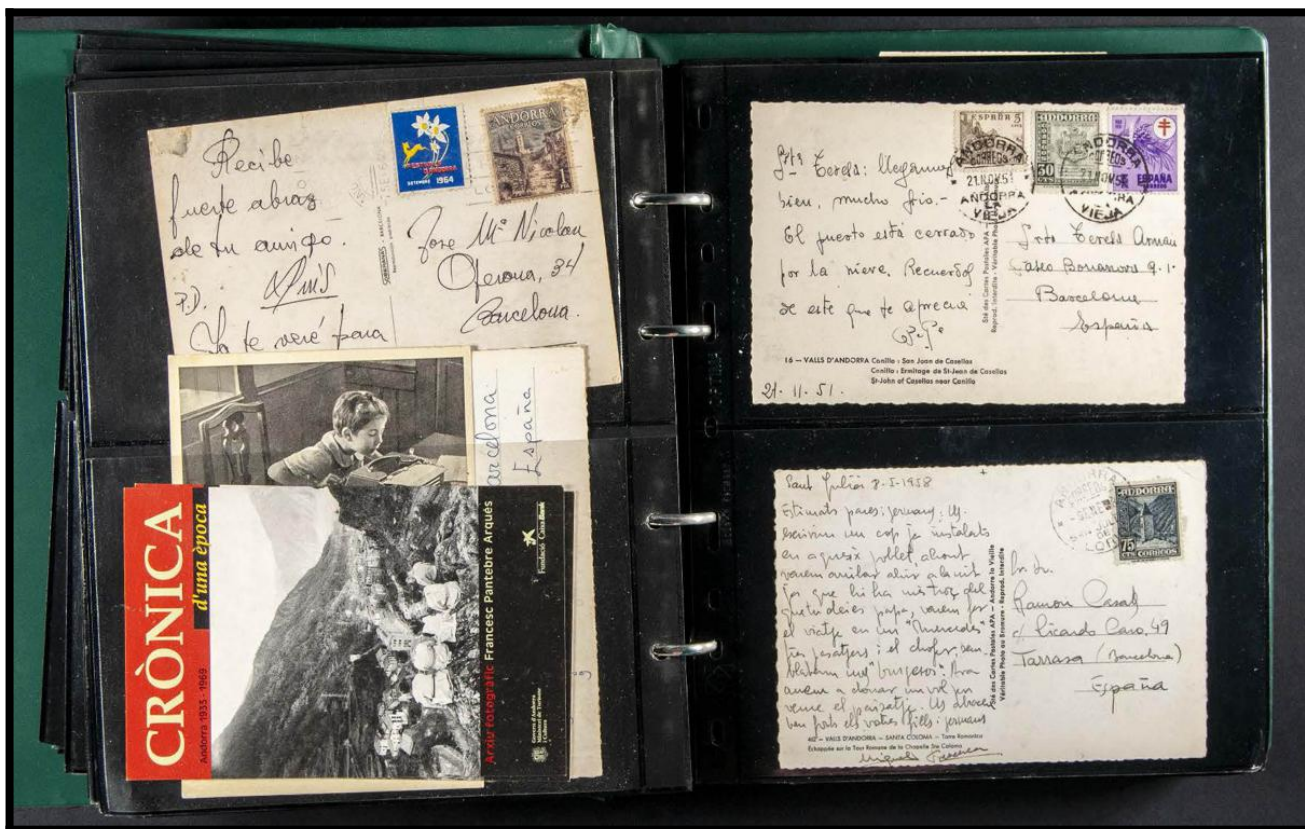 Recibe
fuerte abrazo
de tu amigo.
Luis
P.D.
Ya te veré para
SETEMBRE 1964
ANDORRA
CORREOS
1
PTA
SOBERANAS - BARCELONA
Jose Mª Nicolau
Gerona, 34
Barcelona.
Barcelona
España
CRÒNICA
d'una època
Andorra 1935 - 1969
Arxiu fotogràfic Francesc Pantebre Arqués
Govern d'Andorra
Fundació
Srta Terels: Llegamos
bien, mucho frío.-
El puerto está cerrado
por la nieve. Recuerdos
de este que te aprecia
Pepe
16 — VALLS D'ANDORRA Canillo : San Joan de Casellas
Canillo : Ermitage de St-Jean de Casellas
St-John of Casellas near Canillo
21-11-51.
Sté des Cartes Postales APA
Reprod. Interdite - Véritable Photo
ESPAÑA 5
ANDORRA
50
5 ESPAÑA
ANDORRA
CORREOS
21.NOV.51
ANDORRA
LA
VIEJA
ANDORRA
CORREOS
21.NOV.51
VIEJA
Srta Terels Arnau
Paseo Bonanova 9-1-
Barcelona
España
Sant Julià 8-I-1958
Estimats pares i germans: Us
escrivim un cop ja instalats
en aquest poblet, ahont
varem arribar ahir a la nit
el viatje en un "Mercedes"
tres pasatgers i el chofer, sem
anem a donar un vol per
veure el paisatje. Us abracen
ben forts els vostres fills i germans
60 — VALLS D'ANDORRA — SANTA COLOMA — Torre Romanica
Echappée sur la Tour Romane de la Chapelle Ste Coloma
Sté des Cartes Postales APA — Andorre la Vieille
Véritable Photo au Bromure - Reprod. Interdite
ANDORRA
75
CTS CORREOS
Ramon Casals
c/ Ricardo Caro, 49
Tarrasa (Barcelona)
España